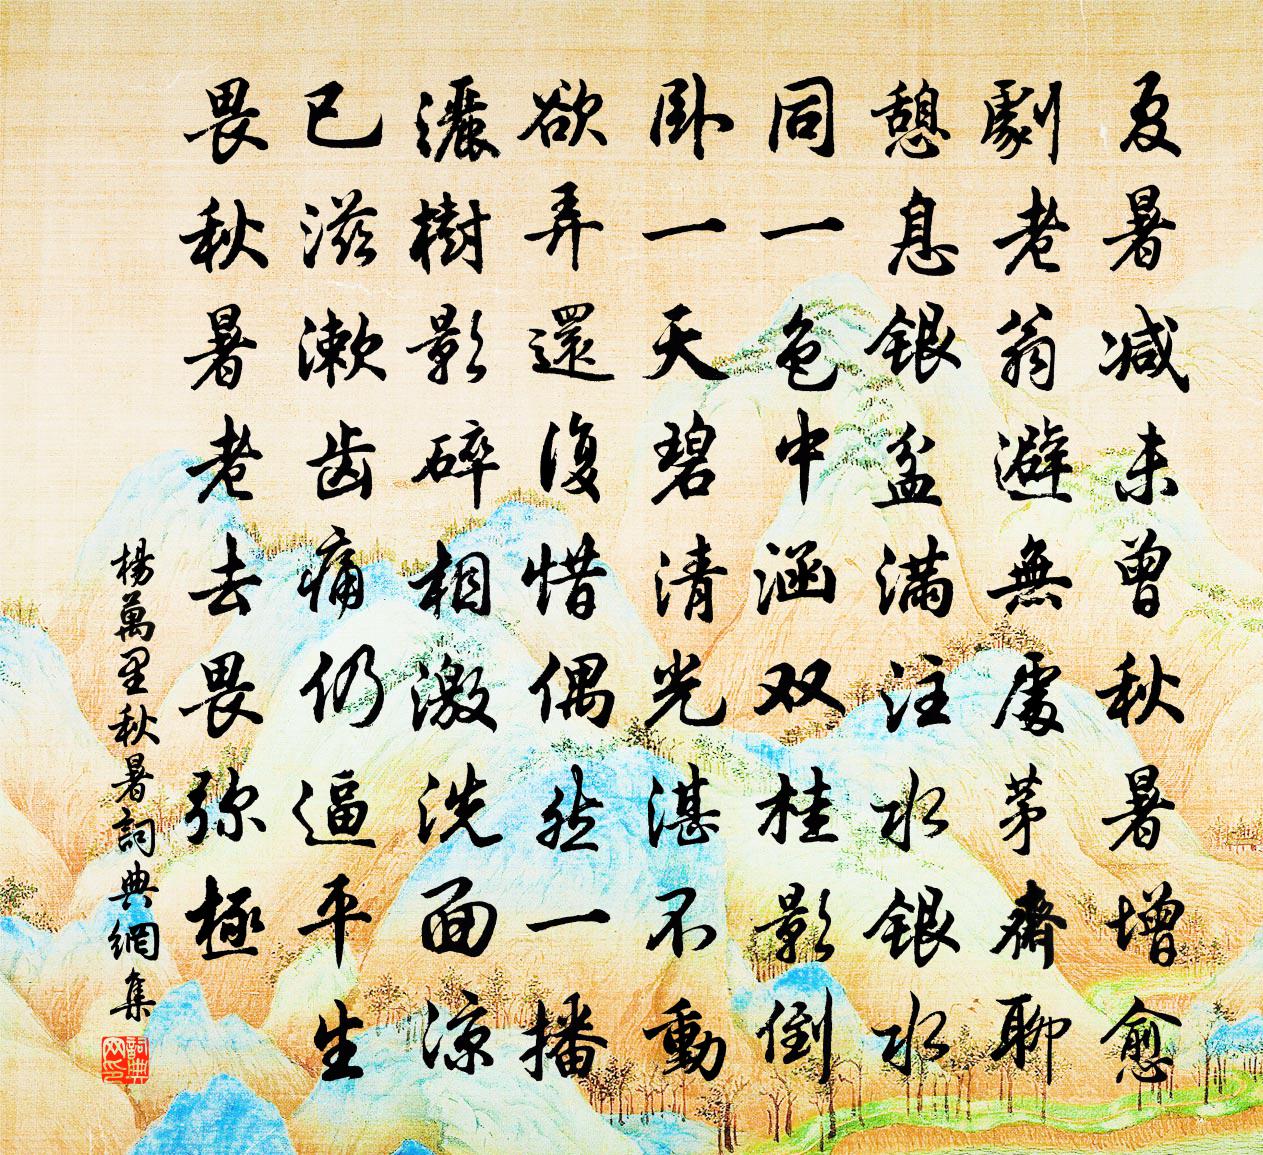 夏暑减未曾秋暑增愈
劇老翁避無處茅齋聊
憩息銀盆滿注水銀水
同一色中涵双桂影倒
卧一天碧清光湛不動
欲弄還復惜偶然一播
灑樹影碎相激洗面涼
已滋漱齿痛仍逼平生
畏秋暑老去畏弥極
楊萬里秋暑詞典網集
詞典网印